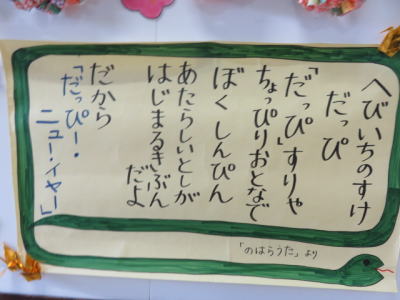 へびいちのすけ
だっぴ
「だっぴ」すりゃ
ちょっぴりおとなで
ぼくしんぴん
あたらしいとしが
はじまるきぶん
だよ
だから
「だっぴー・
ニュー・イヤー」
「のはらうた」より